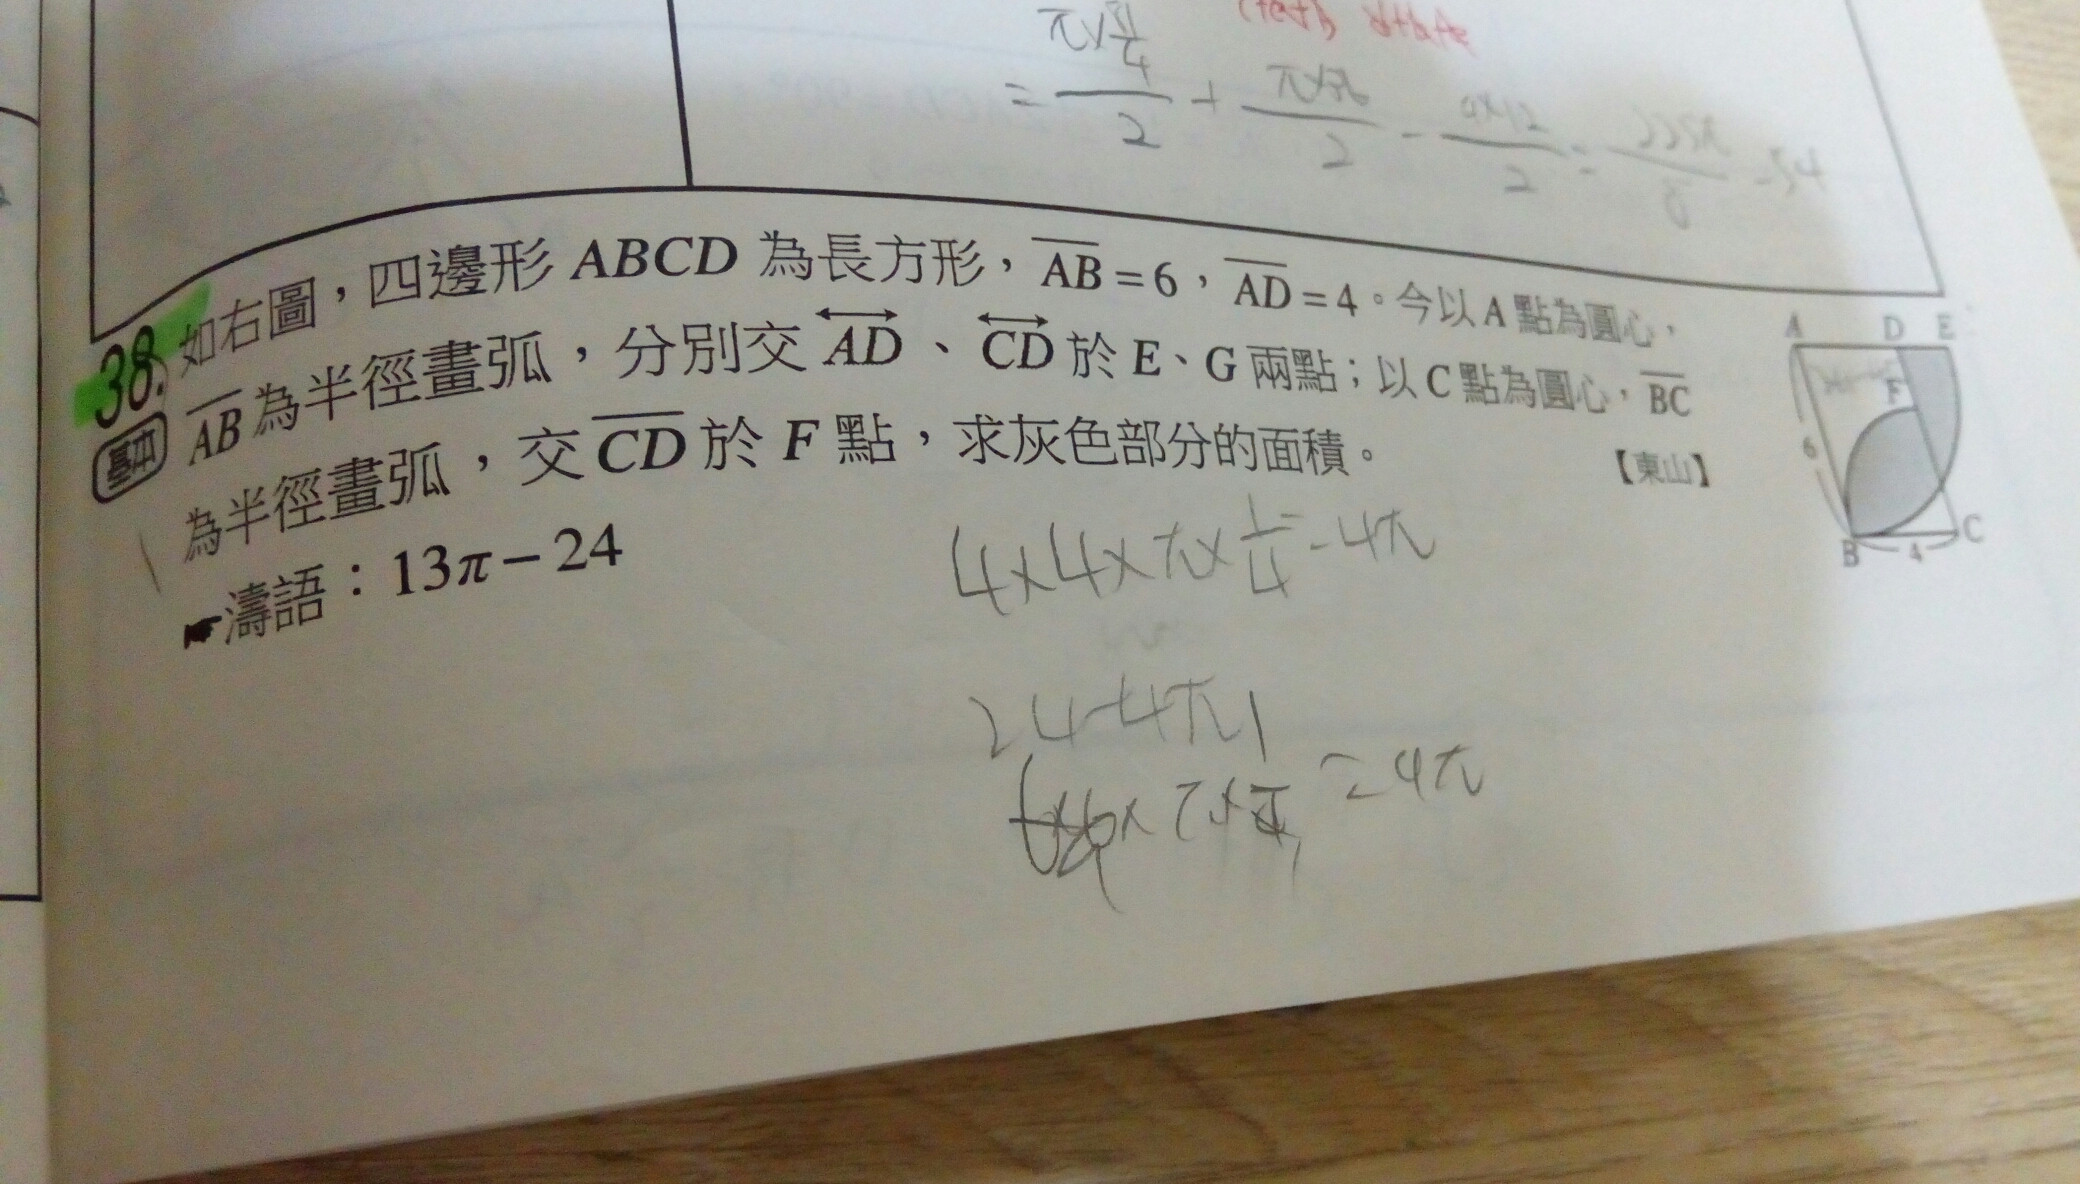 = π×/2 + /2 - /2 = 225π/8 - 54
38. 如右圖，四邊形 ABCD 為長方形，AB = 6，AD = 4。今以 A 點為圓心，
基本 AB 為半徑畫弧，分別交 AD、CD 於 E、G 兩點；以 C 點為圓心，BC
為半徑畫弧，交 CD 於 F 點，求灰色部分的面積。 【東山】
濤語：13π－24
A D E
F
6
B 4 C
4×4×π×1/4=4π
24-4π
=4π